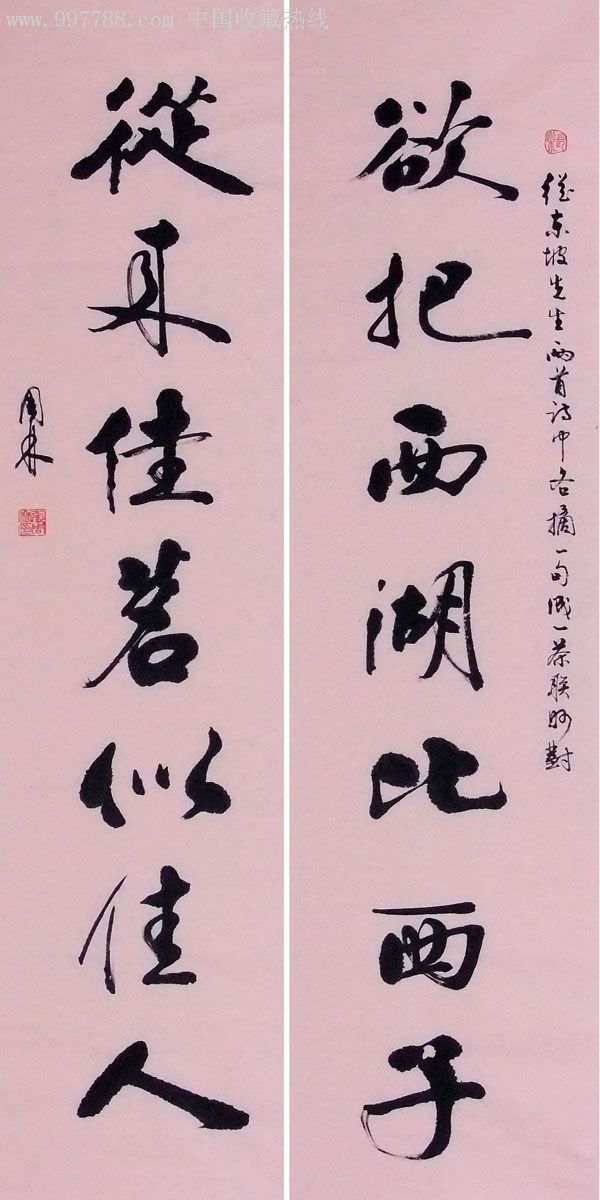 www.997788.com 中国收藏热线
從东坡先生两首诗中各摘一句成一茶联妙對
欲把西湖比西子
從来佳茗似佳人
国林